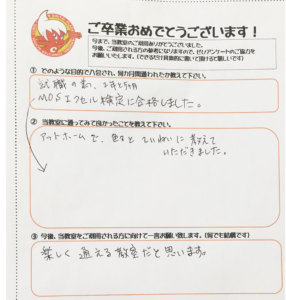 ご卒業おめでとうございます!
今まで、当教室のご利用ありがとうございました。
今後、ご利用される方の参考になりますので、ぜひアンケートのご協力を
お願いいたします。(できるだけ具体的に書いて頂けると嬉しいです)
① どのような目的で入会され、何カ月間通われたか教えて下さい。
就職の為、
MOSエクセル検定に合格しました。
② 当教室に通ってみて良かったことを教えて下さい。
アットホームで、色々とていねいに教えて
いただきました。
③ 今後、当教室をご利用される方に向けて一言お願い致します。(何でも結構です)
楽しく通える教室だと思います。